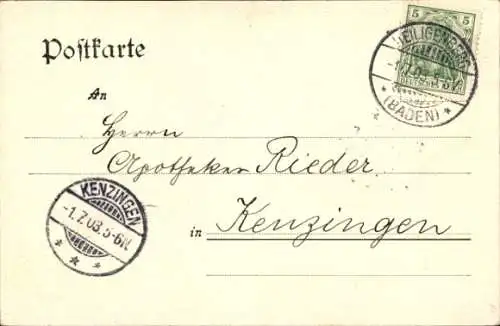 Postkarte
5 5
HEILIGENBERG
(BADEN)
An
Herrn
Apotheker Rieder
in Kenzingen
KENZINGEN
-1.7.03.5-6N.